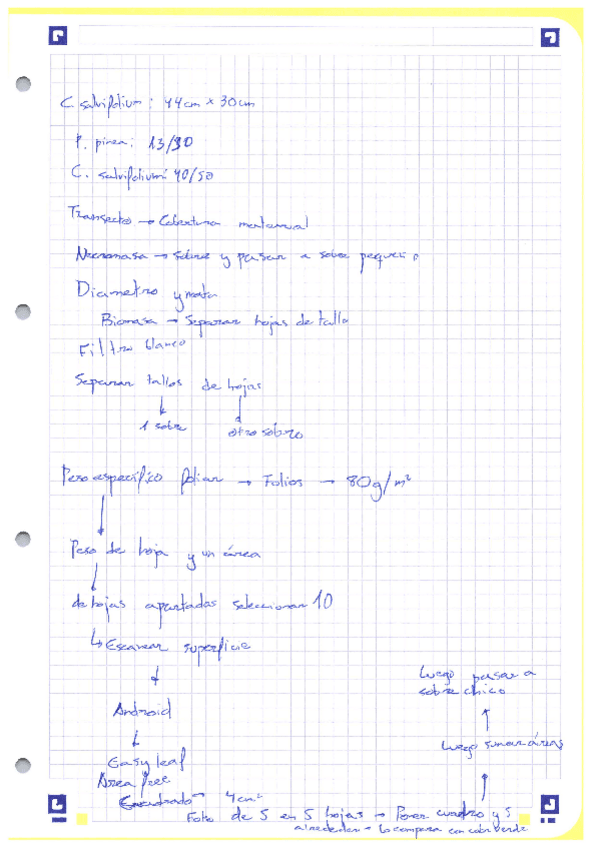 C. salvifolium: 44cm x 30cm
P. pinea: 13/30
C. salvifolium: 40/50
Transecto → Cobertura
Necromasa → sobre y pasar a sobre pequeño
Diametro y mata
Biomasa → Separar hojas de tallo
Filtro blanco
Separar tallos de hojas
↓ ↓
1 sobre otro sobre
Peso especifico foliar → Folios → 80g/m²
↓
Peso de hoja y un área
↓
de hojas apartadas seleccionar 10
↳ Escanear superficie
↓
Android
↓
Easy leaf
Area free
Encuadrado → 4cm²
Foto de 5 en 5 hojas → Poner cuadro y 5
alrededor → Lo compara con color verde
↑
Luego sumar áreas
↑
Luego pasar a
sobre chico